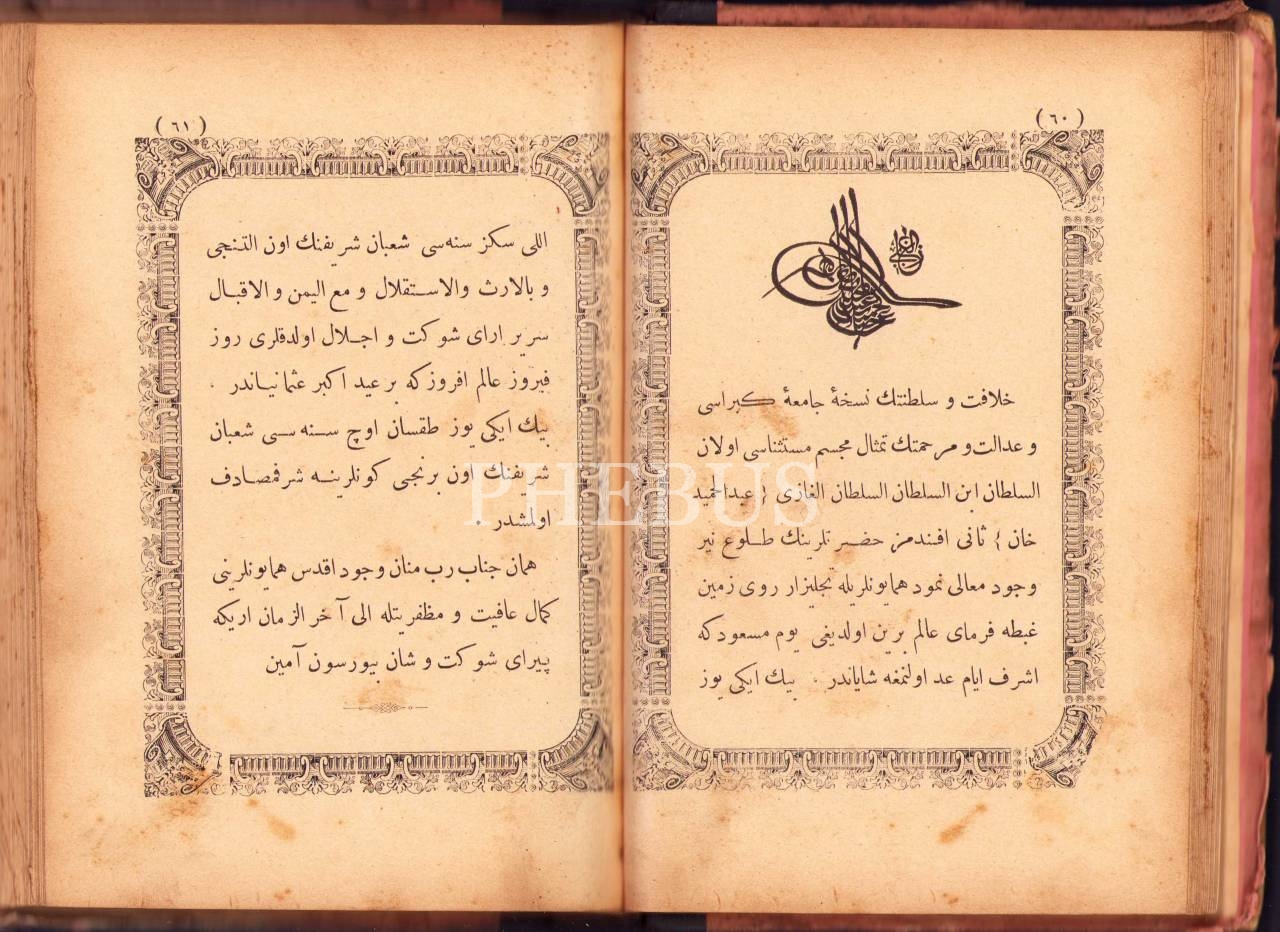 ( ٦٠ )
خلافت و سلطنتك نسخهٔ جامعهٔ كبراسى
و عدالت و مرحمتك تمثال مجسم مستثناسى اولان
السلطان ابن السلطان السلطان الغازى { عبدالحميد
خان } ثانى افندمز حضرتلرينك طلوع نير
وجود معالى نمود همايونلريله تجليزار روى زمين
غبطه فرماى عالم برين اولديغى يوم مسعودكه
اشرف ايام عد اولنمغه شاياندر . بيك ايكى يوز
( ٦١ )
اللى سكز سنه‌سى شعبان شريفنك اون التنجى
و بالارث والاستقلال و مع اليمن و الاقبال
سرير اراى شوكت و اجلال اولدقلرى روز
فيروز عالم افروزكه بر عيد اكبر عثمانياندر .
بيك ايكى يوز طقسان اوچ سنه‌سى شعبان
شريفنك اون برنجى كونلرينه شرفمصادف
اولمشدر .
همان جناب رب منان وجود اقدس همايونلرينى
كمال عافيت و مظفريتله الى آخر الزمان اريكه
پيراى شوكت و شان بيورسون آمين
PHEBUS